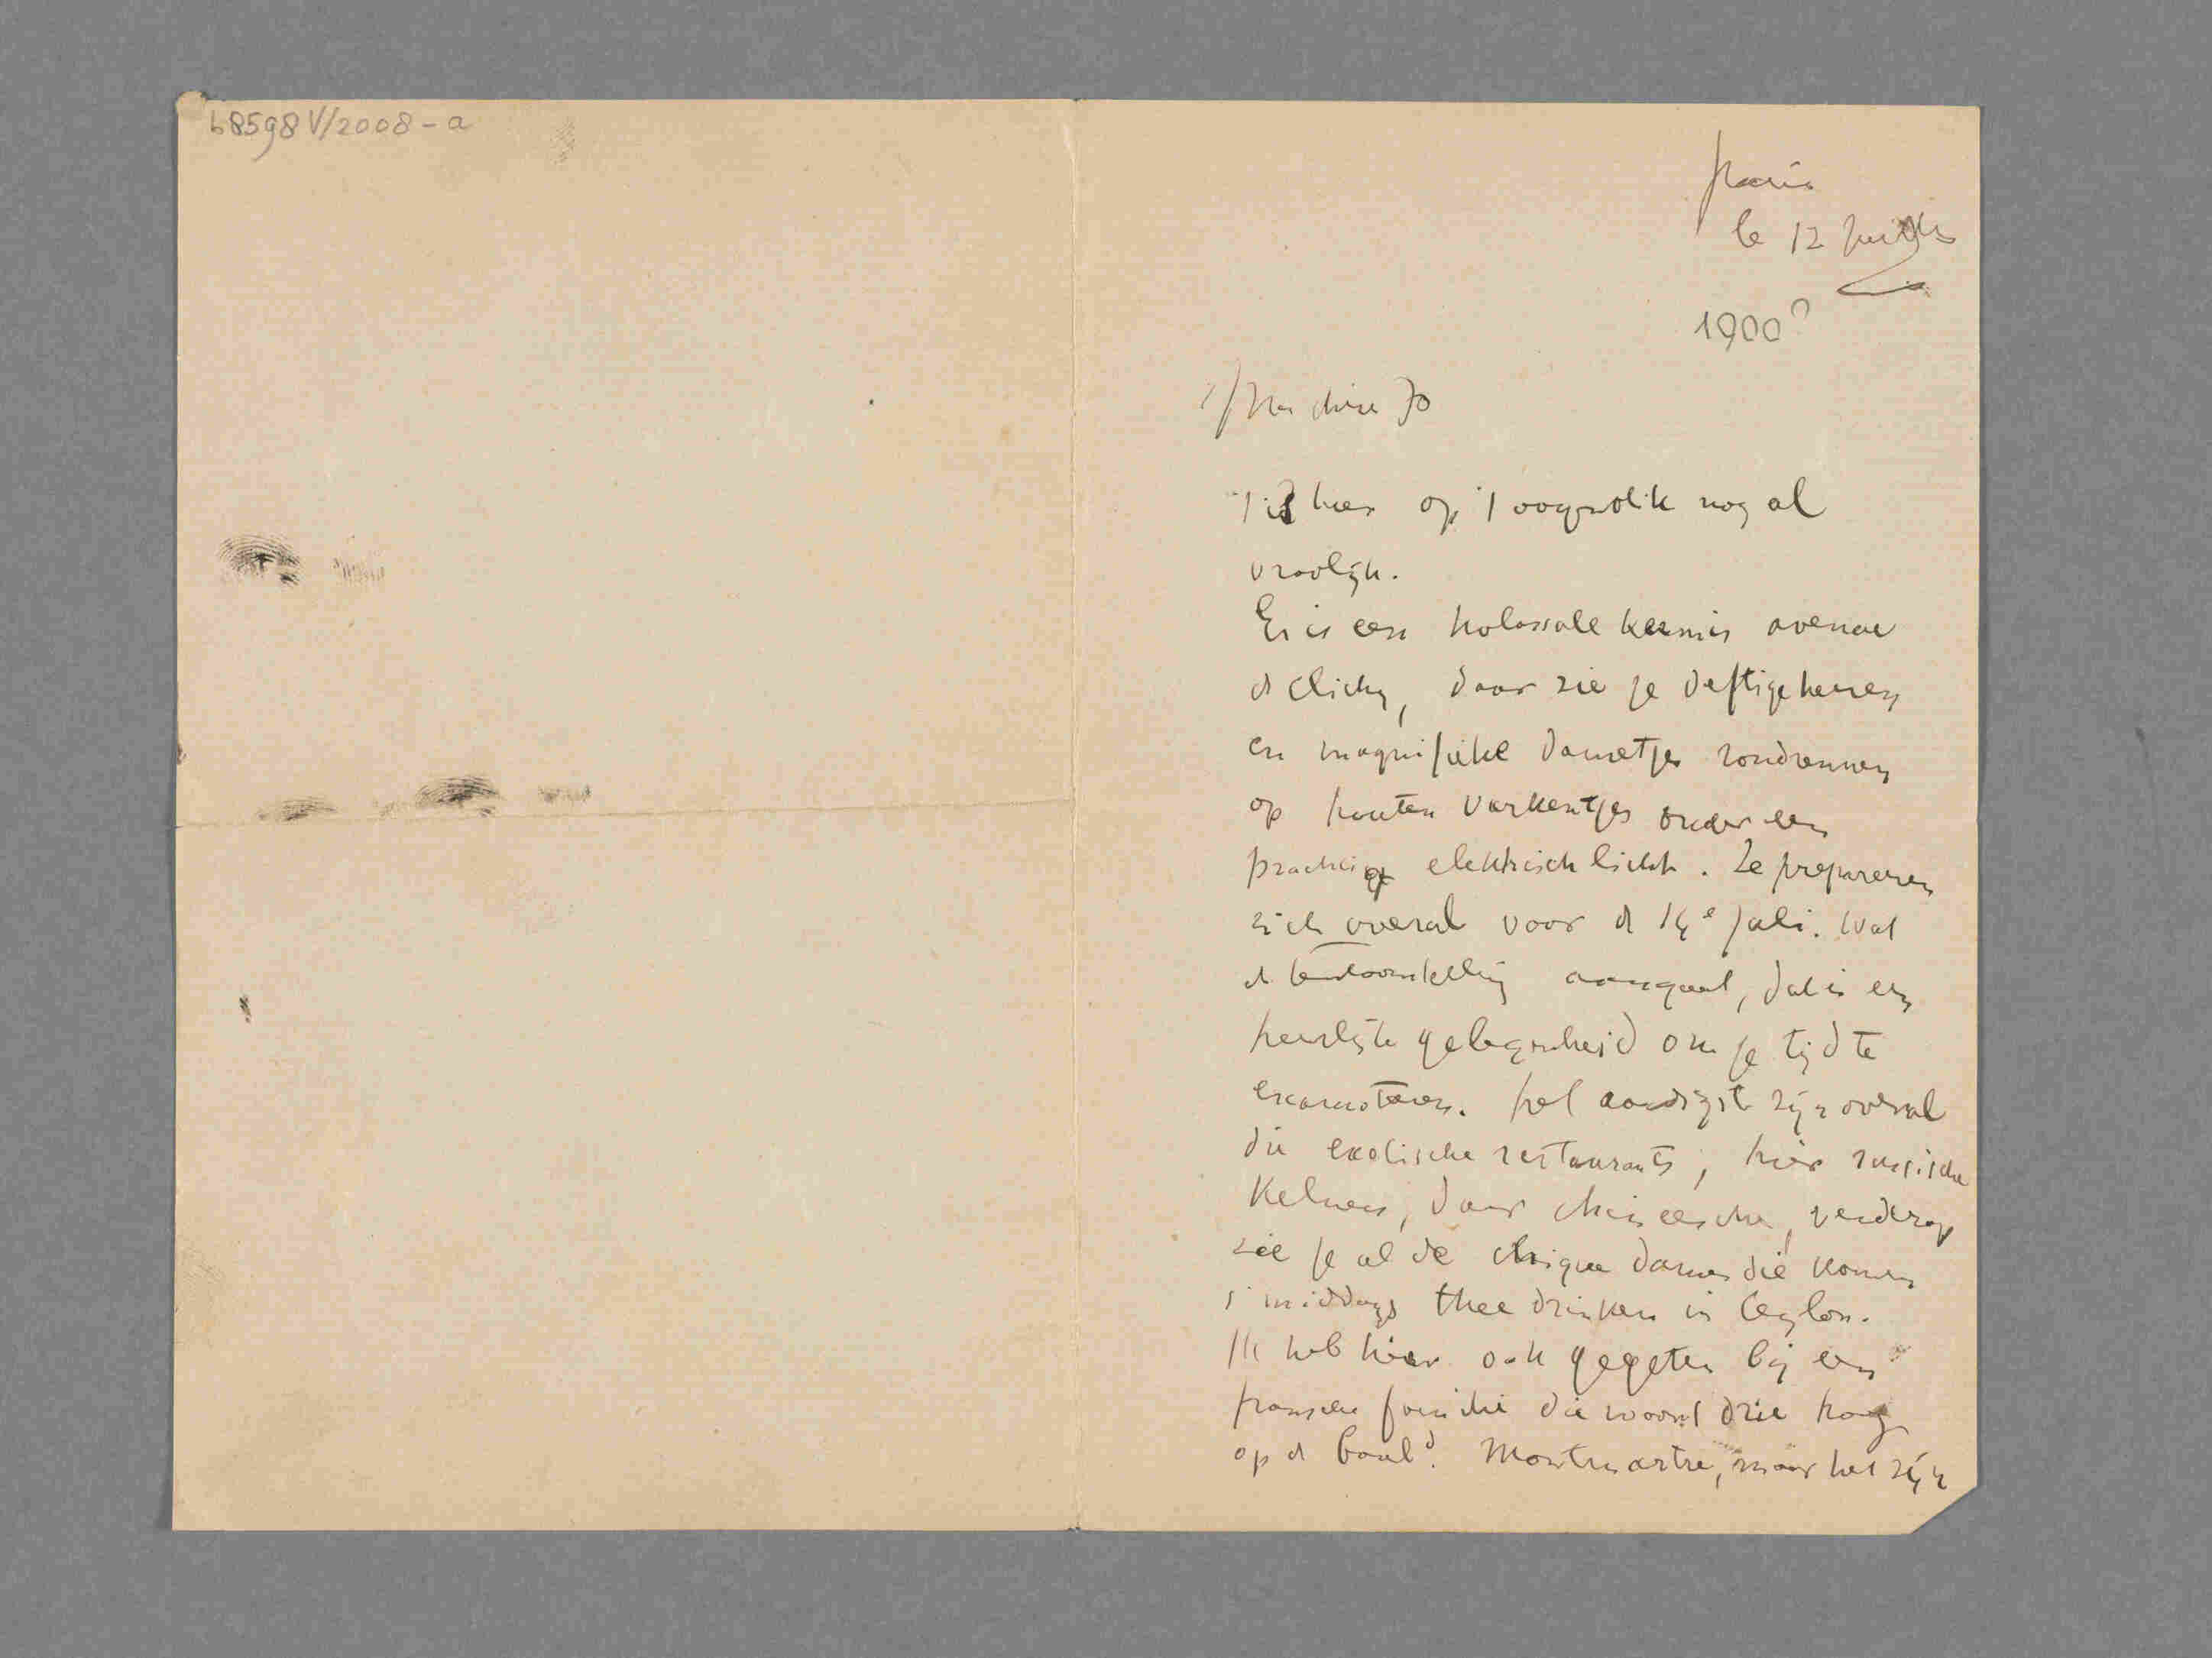 b8598 V/2008 - a
Paris
le 12 Juillet
1900?
Ma chère Jo
't is hier op 't oogenblik nog al
vroolijk.
Er is een kolossale kermis avenue
de Clichy, daar zie je deftige heeren
en magnifieke dametjes rondrennen
op houten varkentjes onder een
prachtige elektrisch licht. Ze prepareren
zich overal voor de 14e Juli. Wat
de tentoonstelling aangaat, dat is een
heerlijke gelegenheid om je tijd te
escamoteren. Het aardigst zijn overal
die exotische restaurants, hier russische
Kelners, daar chineesche, verderop
zie je al de chique dames die komen
's middags thee drinken in Ceylon.
Ik heb hier ook gegeten bij een
fransche familie die woont drie hoog
op de Bould. Montmartre, maar het zijn